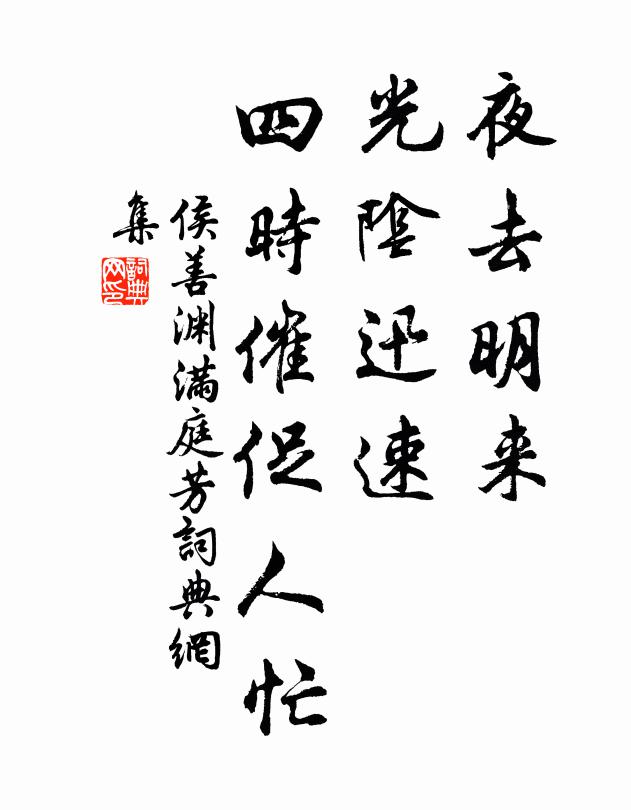 夜去明来
光陰迅速
四時催促人忙
侯善渊滿庭芳詞典網
集
詞典
网印